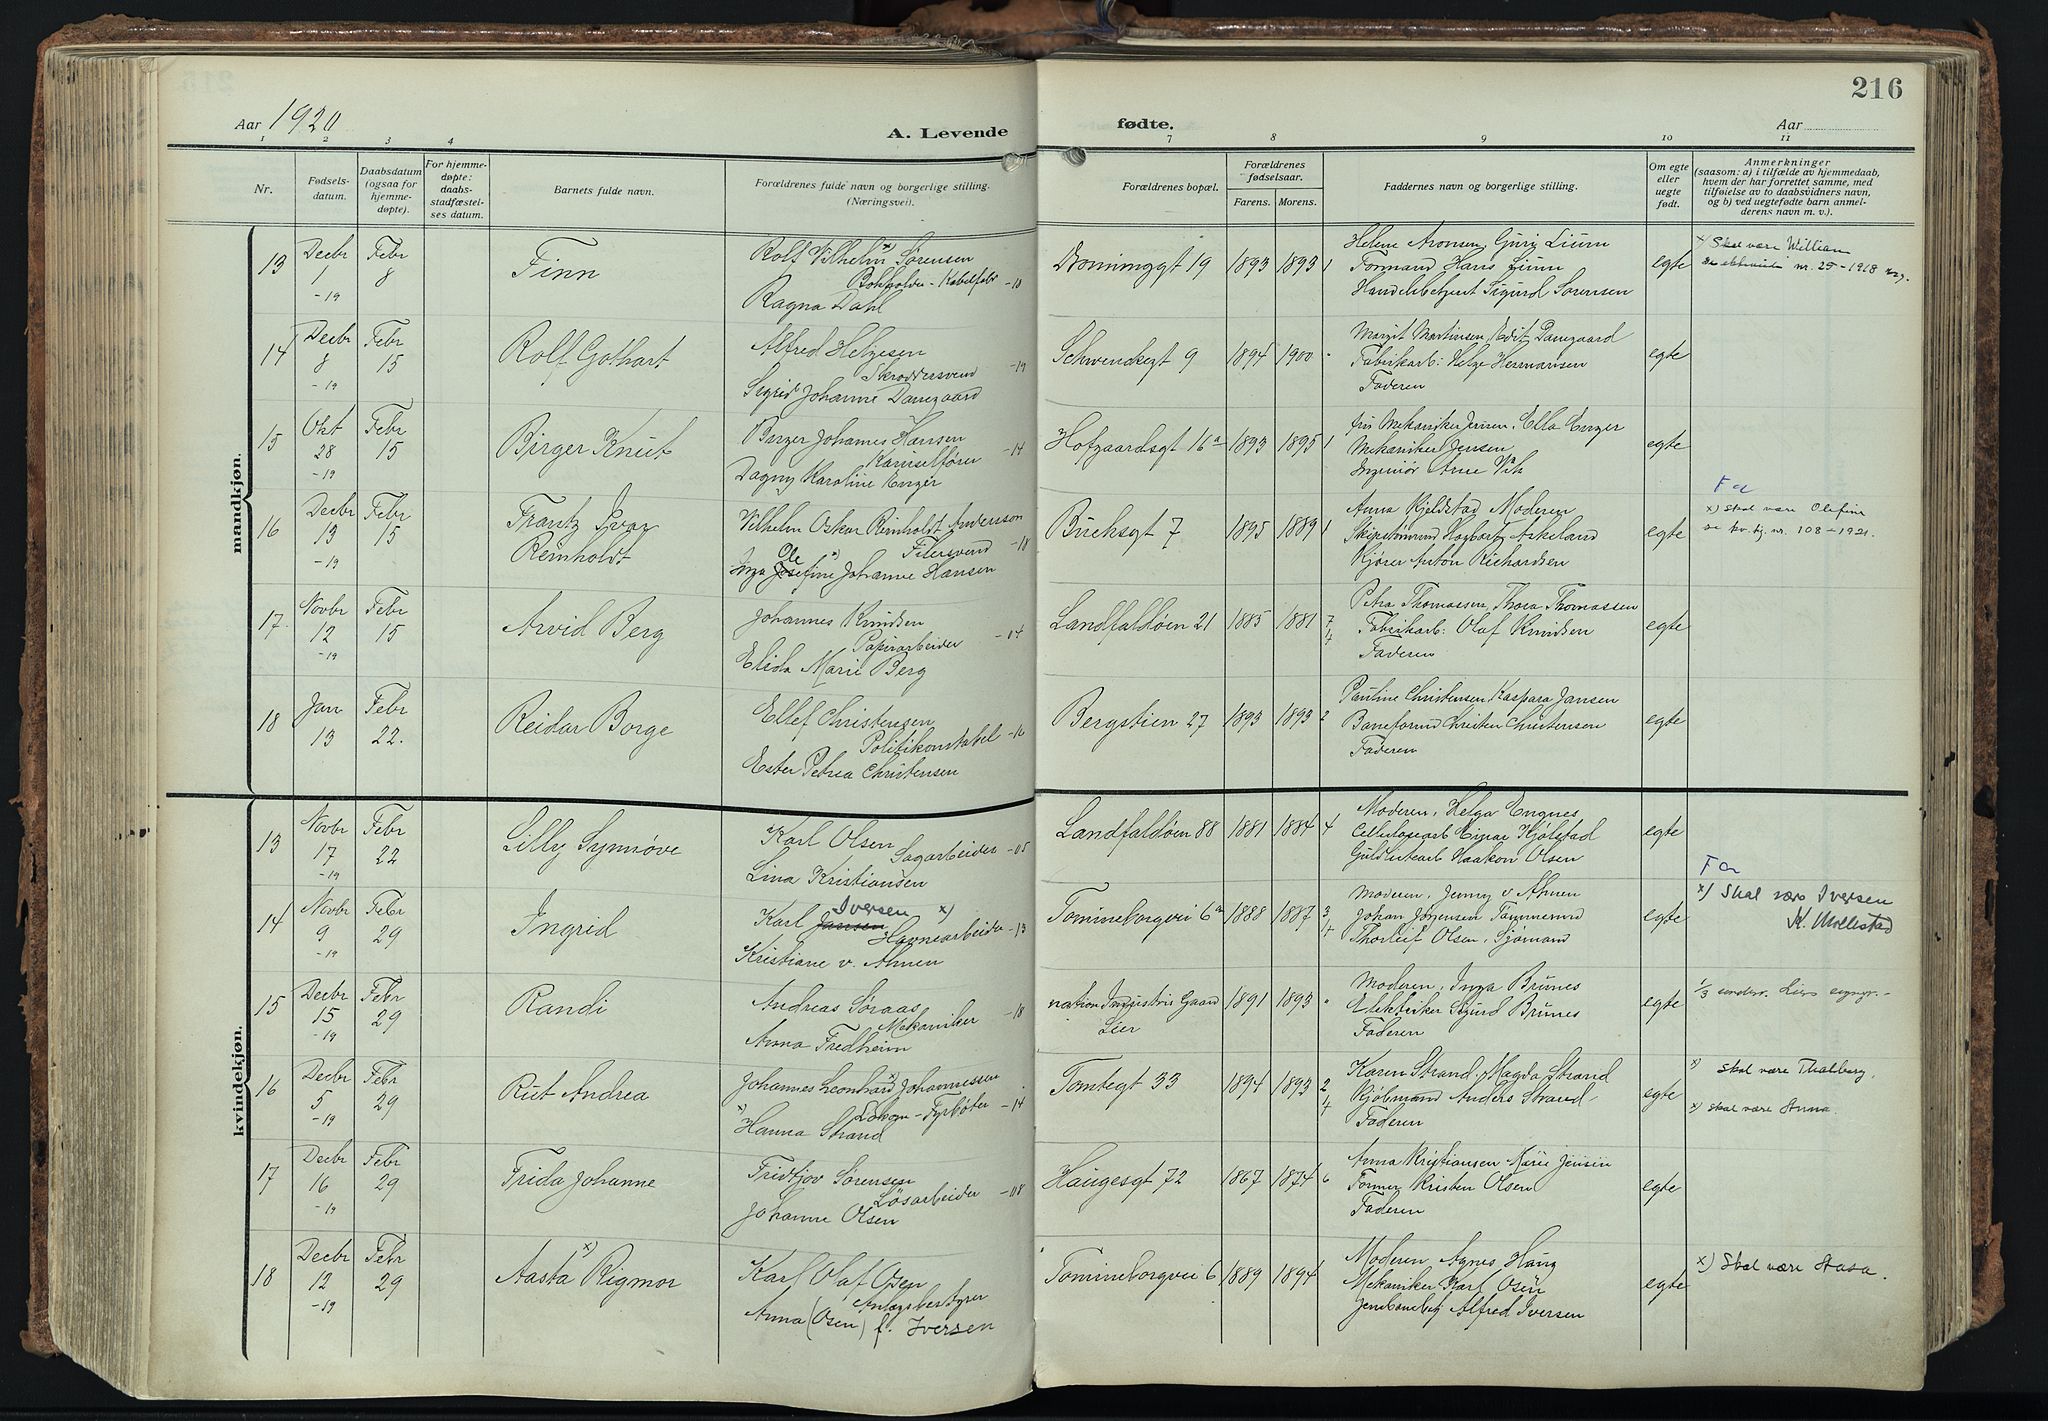 216
Aar 1920
A. Levende
fødte.
Aar
1 2 3 4 7 8 9 10 11
Nr.
Fødsels-
datum.
Daabsdatum
(ogsaa for
hjemme-
døpte).
For hjemme-
døpte:
daabs-
stadfæstel-
ses datum.
Barnets fulde navn.
Forældrenes fulde navn og borgerlige stilling.
(Næringsvei).
Forældrenes bopæl.
Forældrenes
fødselsaar.
Farens. Morens.
Faddernes navn og borgerlige stilling.
Om egte
eller
uegte
født.
Anmerkninger
(saasom: a) i tilfælde av hjemmedaab,
hvem der har forrettet samme, med
tilføielse av to daabsvidners navn,
og b) ved uegtefødte barn anmel-
derens navn m. v.).
mandkjøn.
13
Decbr
1
-19
Febr
8
Finn
Rolf Vilhelm x) Sørensen
Bokholder - Kabelfabr -18
Ragna Dahl
Dronninggt 19
1893 1893 1
Helene Aronsen, Gury Lium
Formand Hans Lium
Handelsbetjent Sigurd Sørensen
egte
x) Skal være William
nr. 25-1918
14
Decbr
8
-19
Febr
15
Rolf Gothart
Alfred Helgesen
Skræddersvend -19
Sigrid Johanne Damgaard
Schwenckegt 9
1894 1900
Margit Martinsen, Edit Damgaard
Fabrikarb: Helge Hermansen
Faderen
egte
15
Okt
28
-19
Febr
15
Birger Knut
Birger Johannes Hansen
Karuselfører -14
Dagny Karoline Enger
Hofgaardsgt 16a
1893 1895 1
fru Mekaniker Jensen, Ella Enger
Mekaniker Jensen
Ingeniør Arne Vik
egte
16
Decbr
13
-19
Febr
15
Frantz Ivar
Reinholdt
Vilhelm Oskar Reinholdt Andersson
Filersvend -18
Inga Josefine Ole x) Johanne Hansen
Buchsgt 7
1895 1889 1
Anna Kjeldstad, Moderen
Skipstømmand Hagbart Askeland
Kjører Anton Richardsen
egte
Fa
x) Skal være Olefine
se kv. kj. nr. 108-1921.
17
Novbr
12
-19
Febr
15
Arvid Berg
Johannes Knudsen
Papirarbeider -04
Elida Marie Berg
Landfaldøien 21
1885 1881 7
4
Petra Thomassen, Thora Thomassen
Fabrikarb: Olaf Knudsen
Faderen
egte
18
Jan
13
Febr
22.
Reidar Borge
Ellef Christensen
Politikonstabel -16
Ester Petrea Christensen
Bergstien 27
1893 1893 2
Pauline Christensen, Kaspara Jansen
Baneformd Christen Christensen
Faderen
egte
kvindekjøn.
13
Novbr
17
-19
Febr
22
Lilly Synnøve
Karl Olsen
Sagarbeider -05
Lina Kristiansen
Landfaldøien 88
1881 1884 4
Moderen, Helga Engnes
Cellulosearb Einar Kjølstad
Guldlistearb Haakon Olsen
egte
14
Novbr
9
-19
Febr
29
Ingrid
Karl Jansen Iversen x)
Havnearbeider -13
Kristiane v. Ahnen
Tomineborgvei 6a
1888 1887 3
4
Moderen, Jenny v Ahnen
Johan Jørgensen Tømmermd
Thorleif Olsen, Sjømand
egte
Fa
x) Skal være Iversen
K. Mollestad
15
Decbr
15
-19
Febr
29
Randi
Andreas Søraas
Mekaniker -18
Anna Fredheim
nation Industris Gaard
Lier
1891 1893
Moderen, Inga Brunes
Elektriker Sigurd Brunes
Faderen
egte
1/3 underr. Liers
16
Decbr
5
-19
Febr
29
Rut Andrea
Johannes Leonhard x) Johannessen
Lokom-Fyrbøter -14
x) Hanna Strand
Tomtegt 33
1894 1893 2
4
Karen Strand, Magda Strand
Kjøbmand Anders Strand
Faderen
egte
x) skal være Thalberg.
x) skal være Anna.
17
Decbr
16
-19
Febr
29
Frida Johanne
Fridtjov Sørensen
Løsarbeider -08
Johanne Olsen
Haugesgt 72
1867 1874 6
Anna Kristiansen, Marie Jensen
Former Kristen Olsen
Faderen
egte
18
Decbr
12
-19
Febr
29
Aasta x) Rigmor
Karl Olaf Osen
Anlægsbestyrer
Anna (Osen) f. Iversen
Tomineborgvei 6
1889 1894
Moderen Agnes Haug
Mekaniker Karl Osen
Jernbanebetj Alfred Iversen
egte
x) Skal være Aasa.